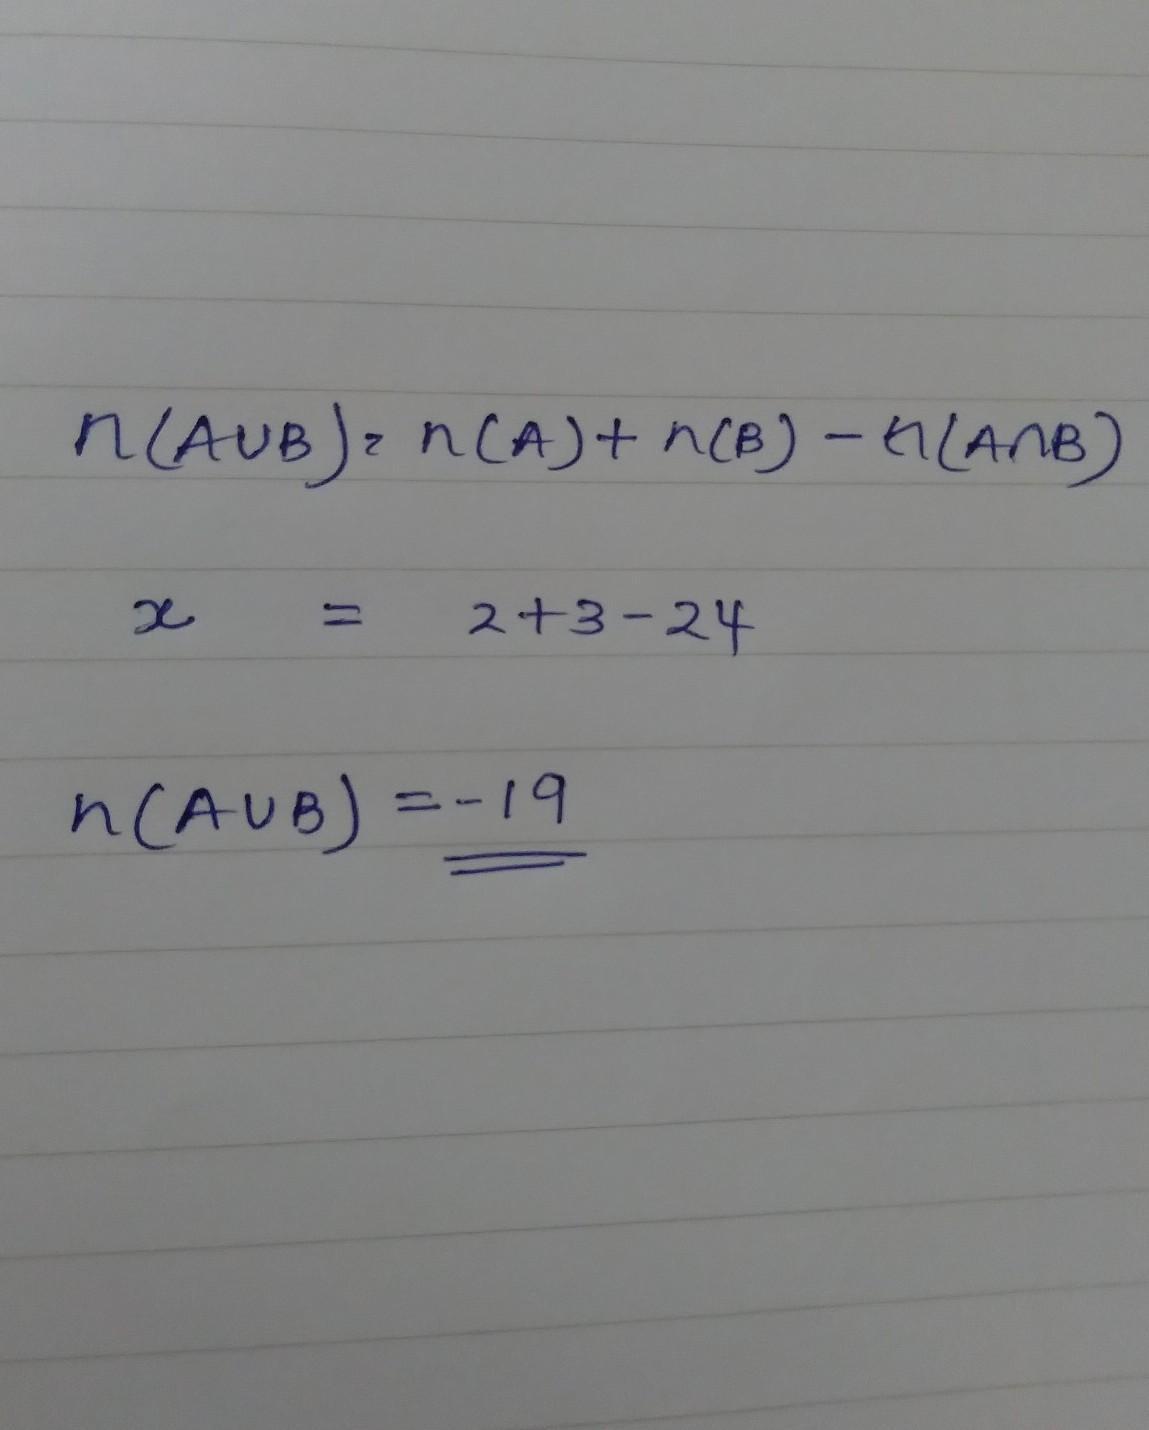 n(A∪B) = n(A) + n(B) - n(A∩B)
x = 2+3-24
n(A∪B) = -19